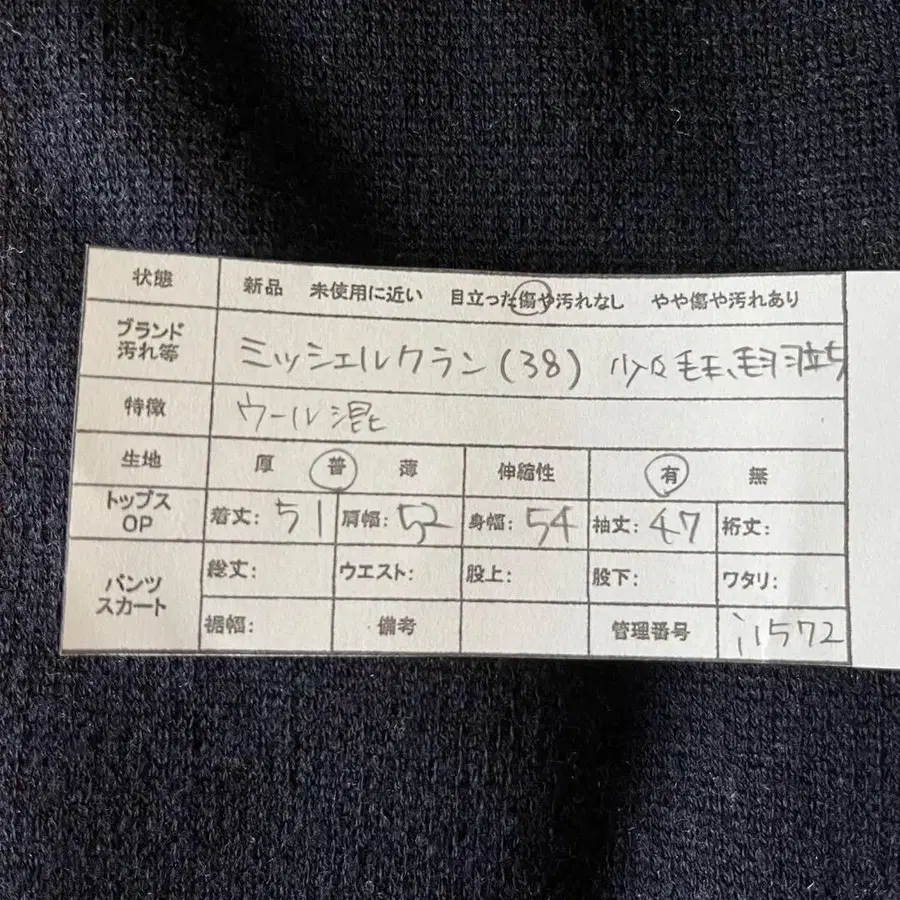 状態 新品 未使用に近い 目立った傷や汚れなし やや傷や汚れあり
ブランド
汚れ等 ミッシェルクラン(38) 少々毛玉、毛羽立ち
特徴 ウール混
生地 厚 普 薄 伸縮性 有 無
トップス
OP 着丈: 51 肩幅: 52 身幅: 54 袖丈: 47 裄丈:
パンツ
スカート 総丈: ウエスト: 股上: 股下: ワタリ:
裾幅: 備考 管理番号 i1572